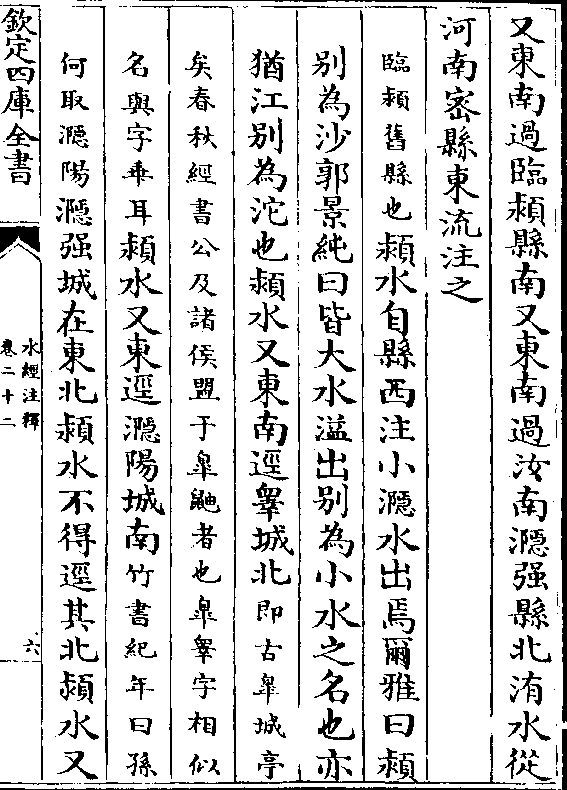 又東南過臨潁縣南又東南過汝南㶏强縣北洧水從
河南密縣東流注之
臨潁舊縣也潁水自縣西注小㶏水出焉爾雅曰潁
别為沙郭景純曰皆大水溢出别為小水之名也亦
猶江别為沱也潁水又東南逕睪城北即古臯城亭
矣春秋經書公及諸侯盟于臯鼬者也臯睪字相似
名與字乖耳潁水又東逕㶏陽城南竹書紀年曰孫
何取㶏陽㶏强城在東北潁水不得逕其北潁水又
欽定四庫全書
水經注釋
卷二十二
六